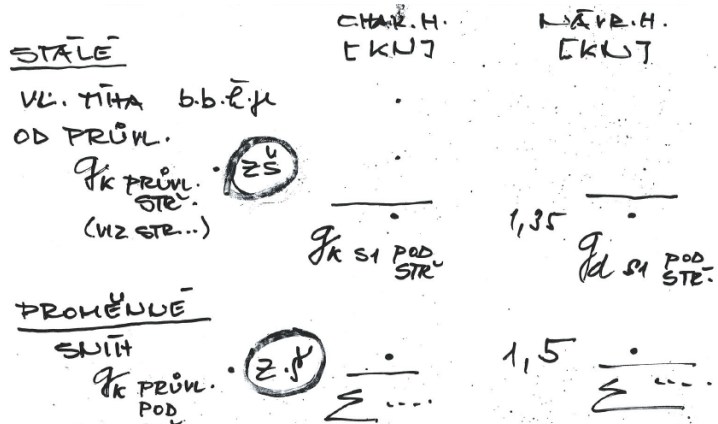 CHAR.H. NÁVR.H.
STÁLÉ [KN] [KN]
VL. TÍHA b.b.l.γc
OD PRŮVL.
gK PRŮVL. STŘ. · ZŠ
(VIZ STR...)
gK S1 POD STŘ 1,35 gd S1 POD STŘ.
PROMĚNNÉ
SNÍH
gK PRŮVL. POD · Z.Š 1,5
Σ .... Σ ....